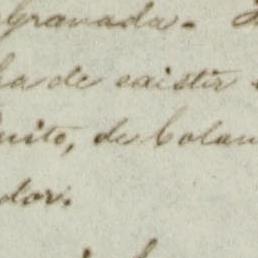 Granada.
ha de existir
Quito, de Colom
dor.